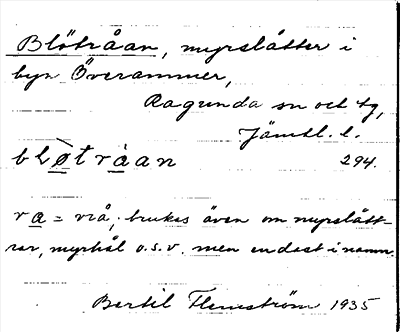 Blötråan, myrslåtter i
byn Överammer,
Ragunda sn och tg,
Jämtl. l.
bløtràan 294.
ra = vrå; brukas även om myrslått-
rar, myrhål o.s.v. men endast i namn.
Bertil Flemström 1935